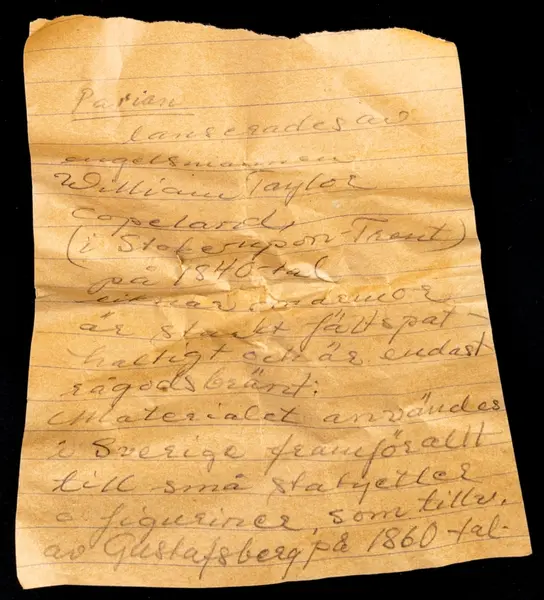 Parian
lanserades av
engelsmannen
William Taylor
Copeland,
(i Stoke-upon-Trent)
på 1840-tal
är starkt fältspat-
haltigt och är endast
rågodsbränt.
Materialet användes
i Sverige framförallt
till små statyetter
o figuriner, som tillv.
av Gustafsberg på 1860-tal.